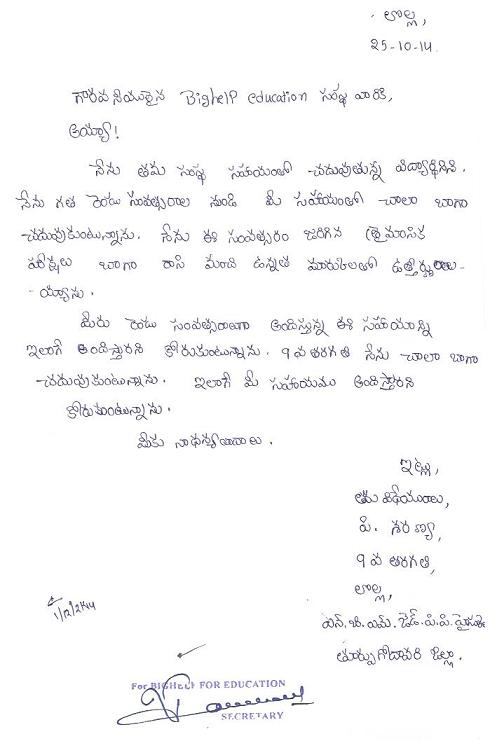 లొల్ల,
25-10-14.
గౌరవనీయులైన BighelP education సంస్థ వారికి,
అయ్యా!
నేను తమ సంస్థ సహాయంతో చదువుతున్న విద్యార్థినిని.
నేను గత రెండు సంవత్సరాల నుండి మీ సహాయంతో చాలా బాగా
చదువుకుంటున్నాను. నేను ఈ సంవత్సరం జరిగిన త్రైమాసిక
పరీక్షలు బాగా రాసి మంచి ఉన్నత మార్కులతో ఉత్తీర్ణురాల-
య్యాను.
మీరు రెండు సంవత్సరాలుగా అందిస్తున్న ఈ సహాయాన్ని
ఇలాగే అందిస్తారని కోరుకుంటున్నాను. 9వ తరగతి నేను చాలా బాగా
చదువుకుంటున్నాను. ఇలాగే మీ సహాయము అందిస్తారని
కోరుకుంటున్నాను.
మీకు నా ధన్యవాదాలు.
ఇట్లు,
తమ విధేయురాలు,
పి. శరణ్య,
9వ తరగతి,
లొల్ల,
ఎన్.బి.ఎమ్.జెడ్.పి.పి.హైస్కూల్
తూర్పుగోదావరి జిల్లా.
For BIGHELP FOR EDUCATION
SECRETARY